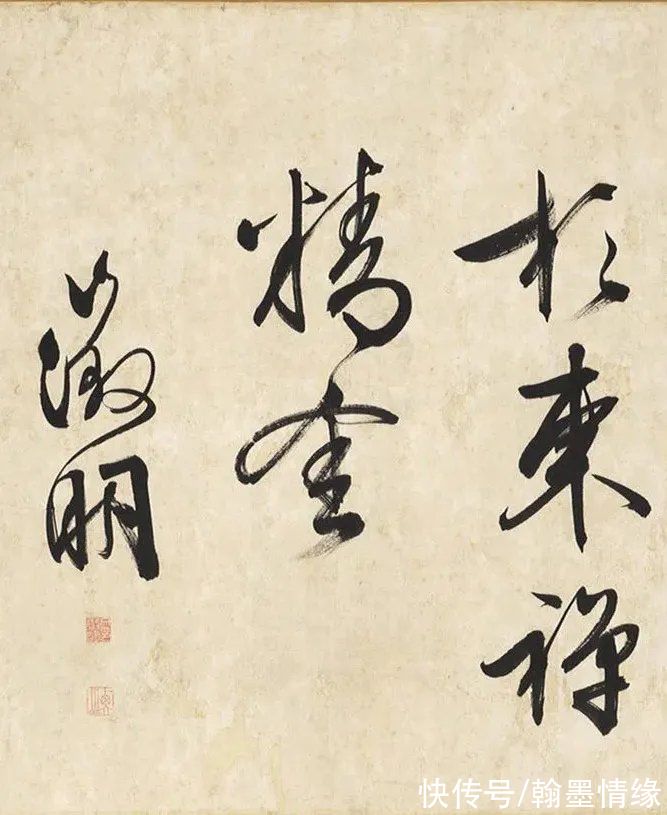 於東禪
精舍
徵明
快传号/翰墨情缘